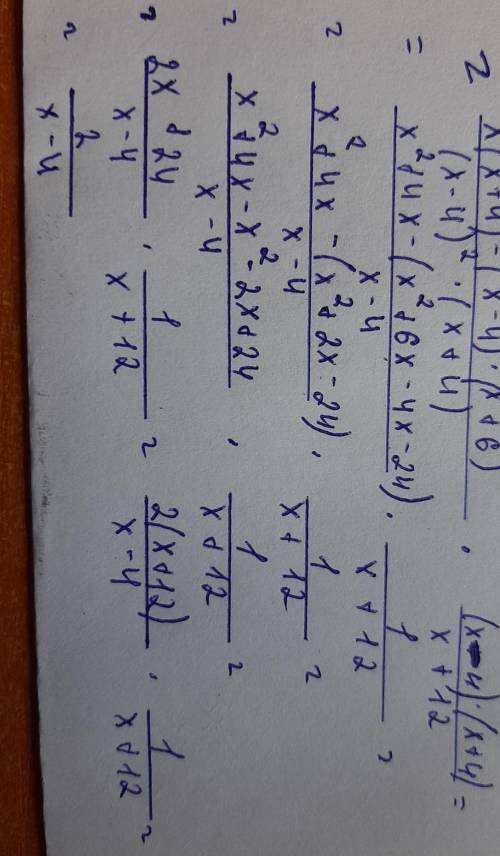 = \frac{x(x+4)-(x-4)\cdot(x+6)}{(x-4)^2\cdot(x+4)} \cdot \frac{(x-4)\cdot(x+4)}{x+12} =
= \frac{x^2+4x-(x^2+6x-4x-24)}{x-4} \cdot \frac{1}{x+12} =
= \frac{x^2+4x-(x^2+2x-24)}{x-4} \cdot \frac{1}{x+12} =
= \frac{x^2+4x-x^2-2x+24}{x-4} \cdot \frac{1}{x+12} =
= \frac{2x+24}{x-4} \cdot \frac{1}{x+12} = \frac{2(x+12)}{x-4} \cdot \frac{1}{x+12} =
= \frac{2}{x-4}